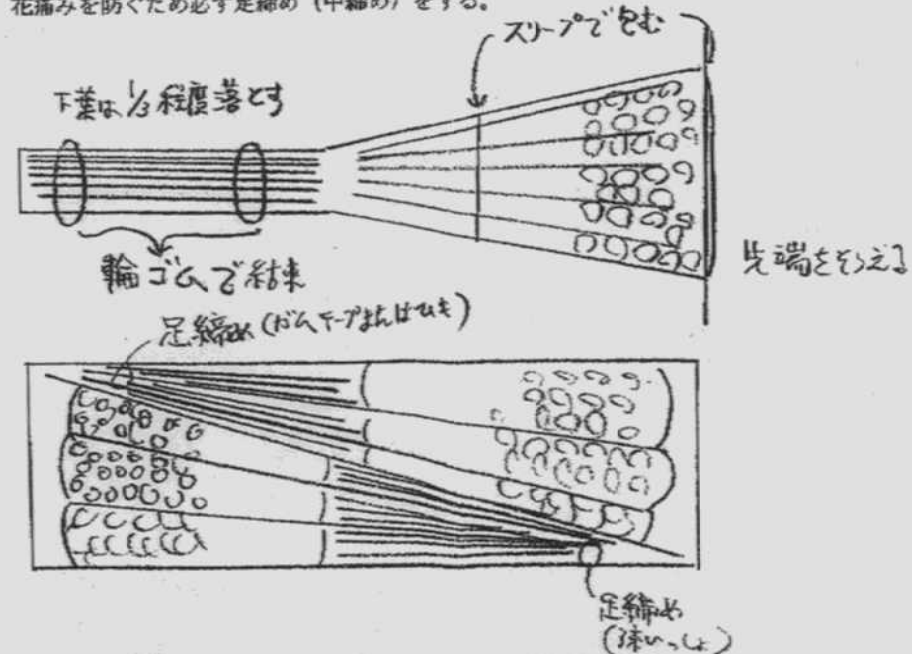 花痛みを防ぐため必ず足締め（中締め）をする。
スリーブで包む
下葉は1/3程度落とす
輪ゴムで結束
先端をそろえる
足締め(ガムテープまたはひも)
足締め